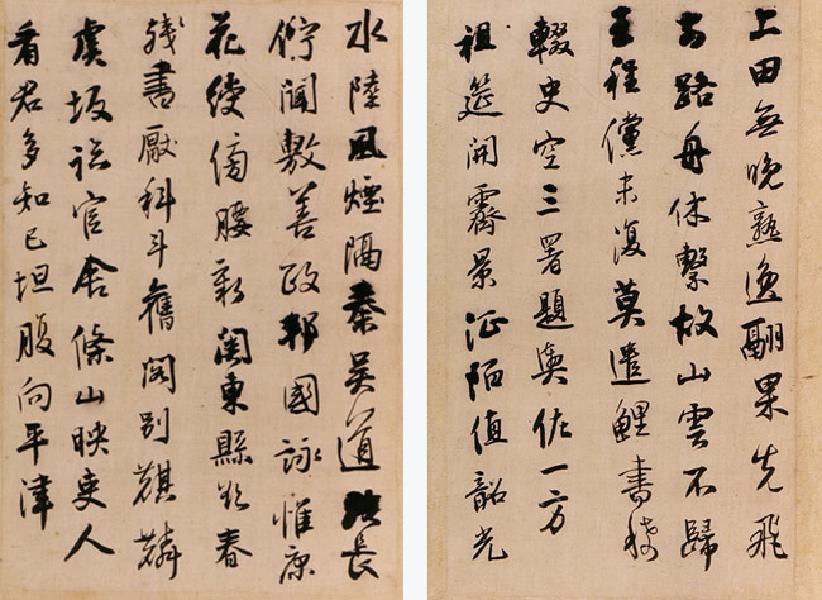 上田無晚熟逸翮果先飛
前路舟休繫故山雲不歸
王程儻未復莫遣鯉書稀
輟史空三署題輿佐一方
祖筵開霽景征陌值韶光
水陸風煙隔秦吳道路長
佇聞敷善政邦國詠惟康
花綬傍腰新關東縣欲春
殘書厭科斗舊閣別麒麟
虞坂臨官舍條山映吏人
看君多知己坦腹向平津